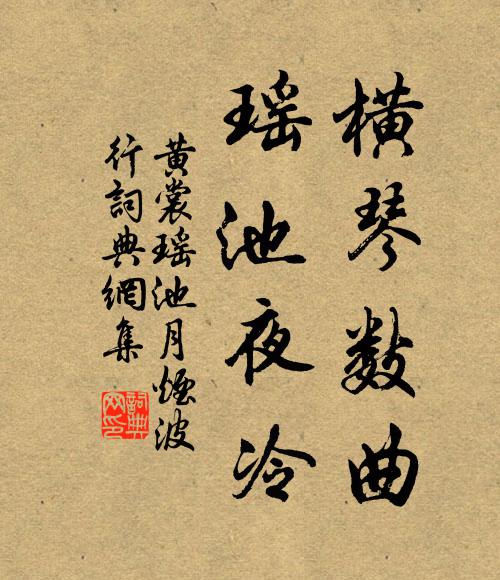 横琴数曲
瑶池夜冷
黄裳瑶池月烟波
行詞典網集
詞典网印